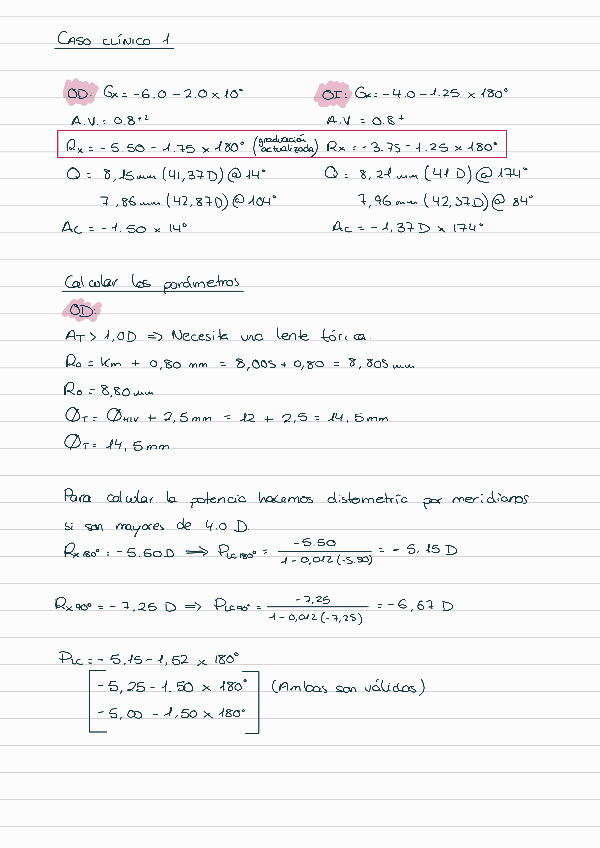 CASO CLÍNICO 1
OD: Gx = -6.0 - 2.0 x 10° OI: Gx = -4.0 - 1.25 x 180°
A.V. = 0.8⁺² A.V = 0.8⁺
Rx = -5.50 - 1.75 x 180° (graduación actualizada) Rx = -3.75 - 1.25 x 180°
Q = 8,15 mm (41,37D) @ 14° Q = 8,21 mm (41 D) @ 174°
7,86 mm (42,87D) @ 104° 7,96 mm (42,37D) @ 84°
Ac = -1.50 x 14° Ac = -1,37 D x 174°
Calcular los parámetros
OD:
AT > 1,0D ⇒ Necesita una lente tórica.
R₀ = Km + 0,80 mm = 8,005 + 0,80 = 8,805 mm
R₀ = 8,80 mm
ØT = ØHIV + 2,5 mm = 12 + 2,5 = 14,5 mm
ØT = 14,5 mm
Para calcular la potencia hacemos distometría por meridianos
si son mayores de 4.0 D.
Rx 180° = -5.50 D ⟹ PLC 180° = -5.50 / 1 - 0,012 (-5.50) = -5,15 D
Rx 90° = -7,25 D ⟹ PLC 90° = -7,25 / 1 - 0,012 (-7,25) = -6,67 D
PLC = -5,15 - 1,52 x 180°
[-5,25 - 1.50 x 180° (Ambas son válidas)
-5,00 - 1,50 x 180°]